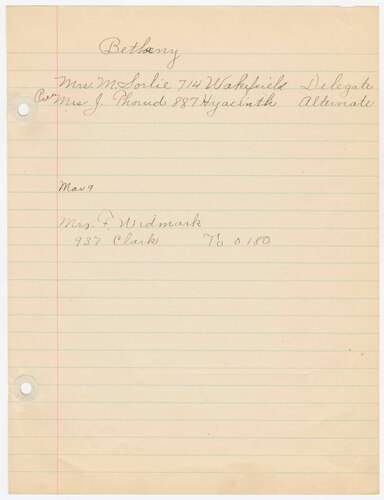 Bethany
Mrs. M. Sorlie 714 Wakefield Delegate
Mrs J. Thorud 887 Hyacinth Alternate
Mav 9
Mrs. F. Widmark
937 Clark To 0180